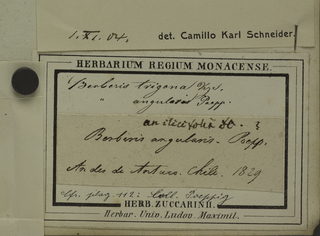 1. XI. 04. det. Camillo Karl Schneider.
HERBARIUM REGIUM MONACENSE.
Berberis trigona
" angularis Poepp.
an ilicifolia
Berberis angularis. Poepp.
Andes de Antuco. Chile. 1829
plag. 112: Coll. Poeppig
HERB. ZUCCARINII.
Herbar. Univ. Ludov. Maximil.